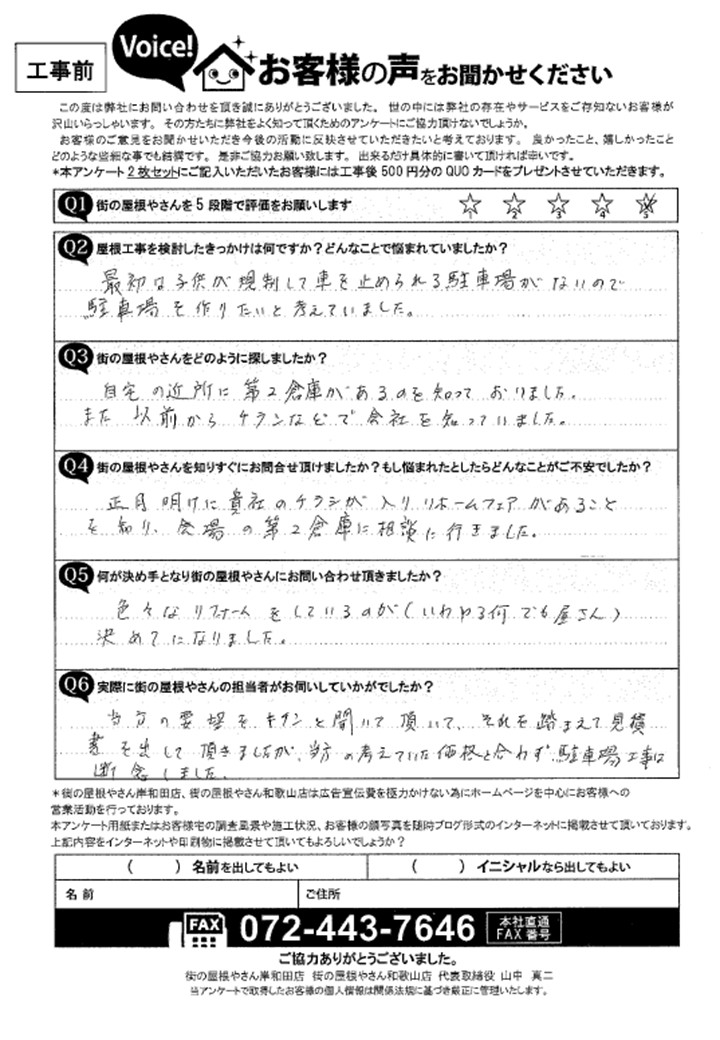 工事前
Voice!
お客様の声をお聞かせください
この度は弊社にお問い合わせを頂き誠にありがとうございました。 世の中には弊社の存在やサービスをご存知ないお客様が
沢山いらっしゃいます。 その方たちに弊社をよく知って頂くためのアンケートにご協力頂けないでしょうか。
お客様のご意見をお聞かせいただき今後の活動に反映させていただきたいと考えております。 良かったこと、嬉しかったこと
どのような些細な事でも結構です。 是非ご協力お願い致します。 出来るだけ具体的に書いて頂ければ幸いです。
*本アンケート2枚セットにご記入いただいたお客様には工事後500円分のQUOカードをプレゼントさせていただきます。
Q1 街の屋根やさんを5段階で評価をお願いします ☆1 ☆2 ☆3 ☆4 ☆5
Q2 屋根工事を検討したきっかけは何ですか?どんなことで悩まれていましたか?
最初は子供が規制して車を止められる駐車場がないので
駐車場を作りたいと考えていました。
Q3 街の屋根やさんをどのように探しましたか?
自宅の近所に第2倉庫があるのを知っておりました。
また以前からチラシなどで会社を知っていました。
Q4 街の屋根やさんを知りすぐにお問合せ頂けましたか?もし悩まれたとしたらどんなことがご不安でしたか?
正月明けに貴社のチラシが入りリホームフェアがあること
を知り、会場の第2倉庫に相談に行きました。
Q5 何が決め手となり街の屋根やさんにお問い合わせ頂きましたか?
色々なリフォームをしているのが(いわゆる何でも屋さん)
決めてになりました。
Q6 実際に街の屋根やさんの担当者がお伺いしていかがでしたか?
当方の要望をキチンと聞いて頂いて、それを踏まえて見積
書を出して頂きましたが、当方の考えていた価格と合わず、駐車場工事は
断念しました。
*街の屋根やさん岸和田店、街の屋根やさん和歌山店は広告宣伝費を極力かけない為にホームページを中心にお客様への
営業活動を行っております。
本アンケート用紙またはお客様宅の調査風景や施工状況、お客様の顔写真を随時ブログ形式のインターネットに掲載させて頂いております。
上記内容をインターネットや印刷物に掲載させて頂いてもよろしいでしょうか?
( )名前を出してもよい ( )イニシャルなら出してもよい
名前 ご住所
FAX 072-443-7646 本社直通 FAX番号
ご協力ありがとうございました。
街の屋根やさん岸和田店 街の屋根やさん和歌山店 代表取締役 山中 真二
当アンケートで取得したお客様の個人情報は関係法規に基づき厳正に管理いたします。